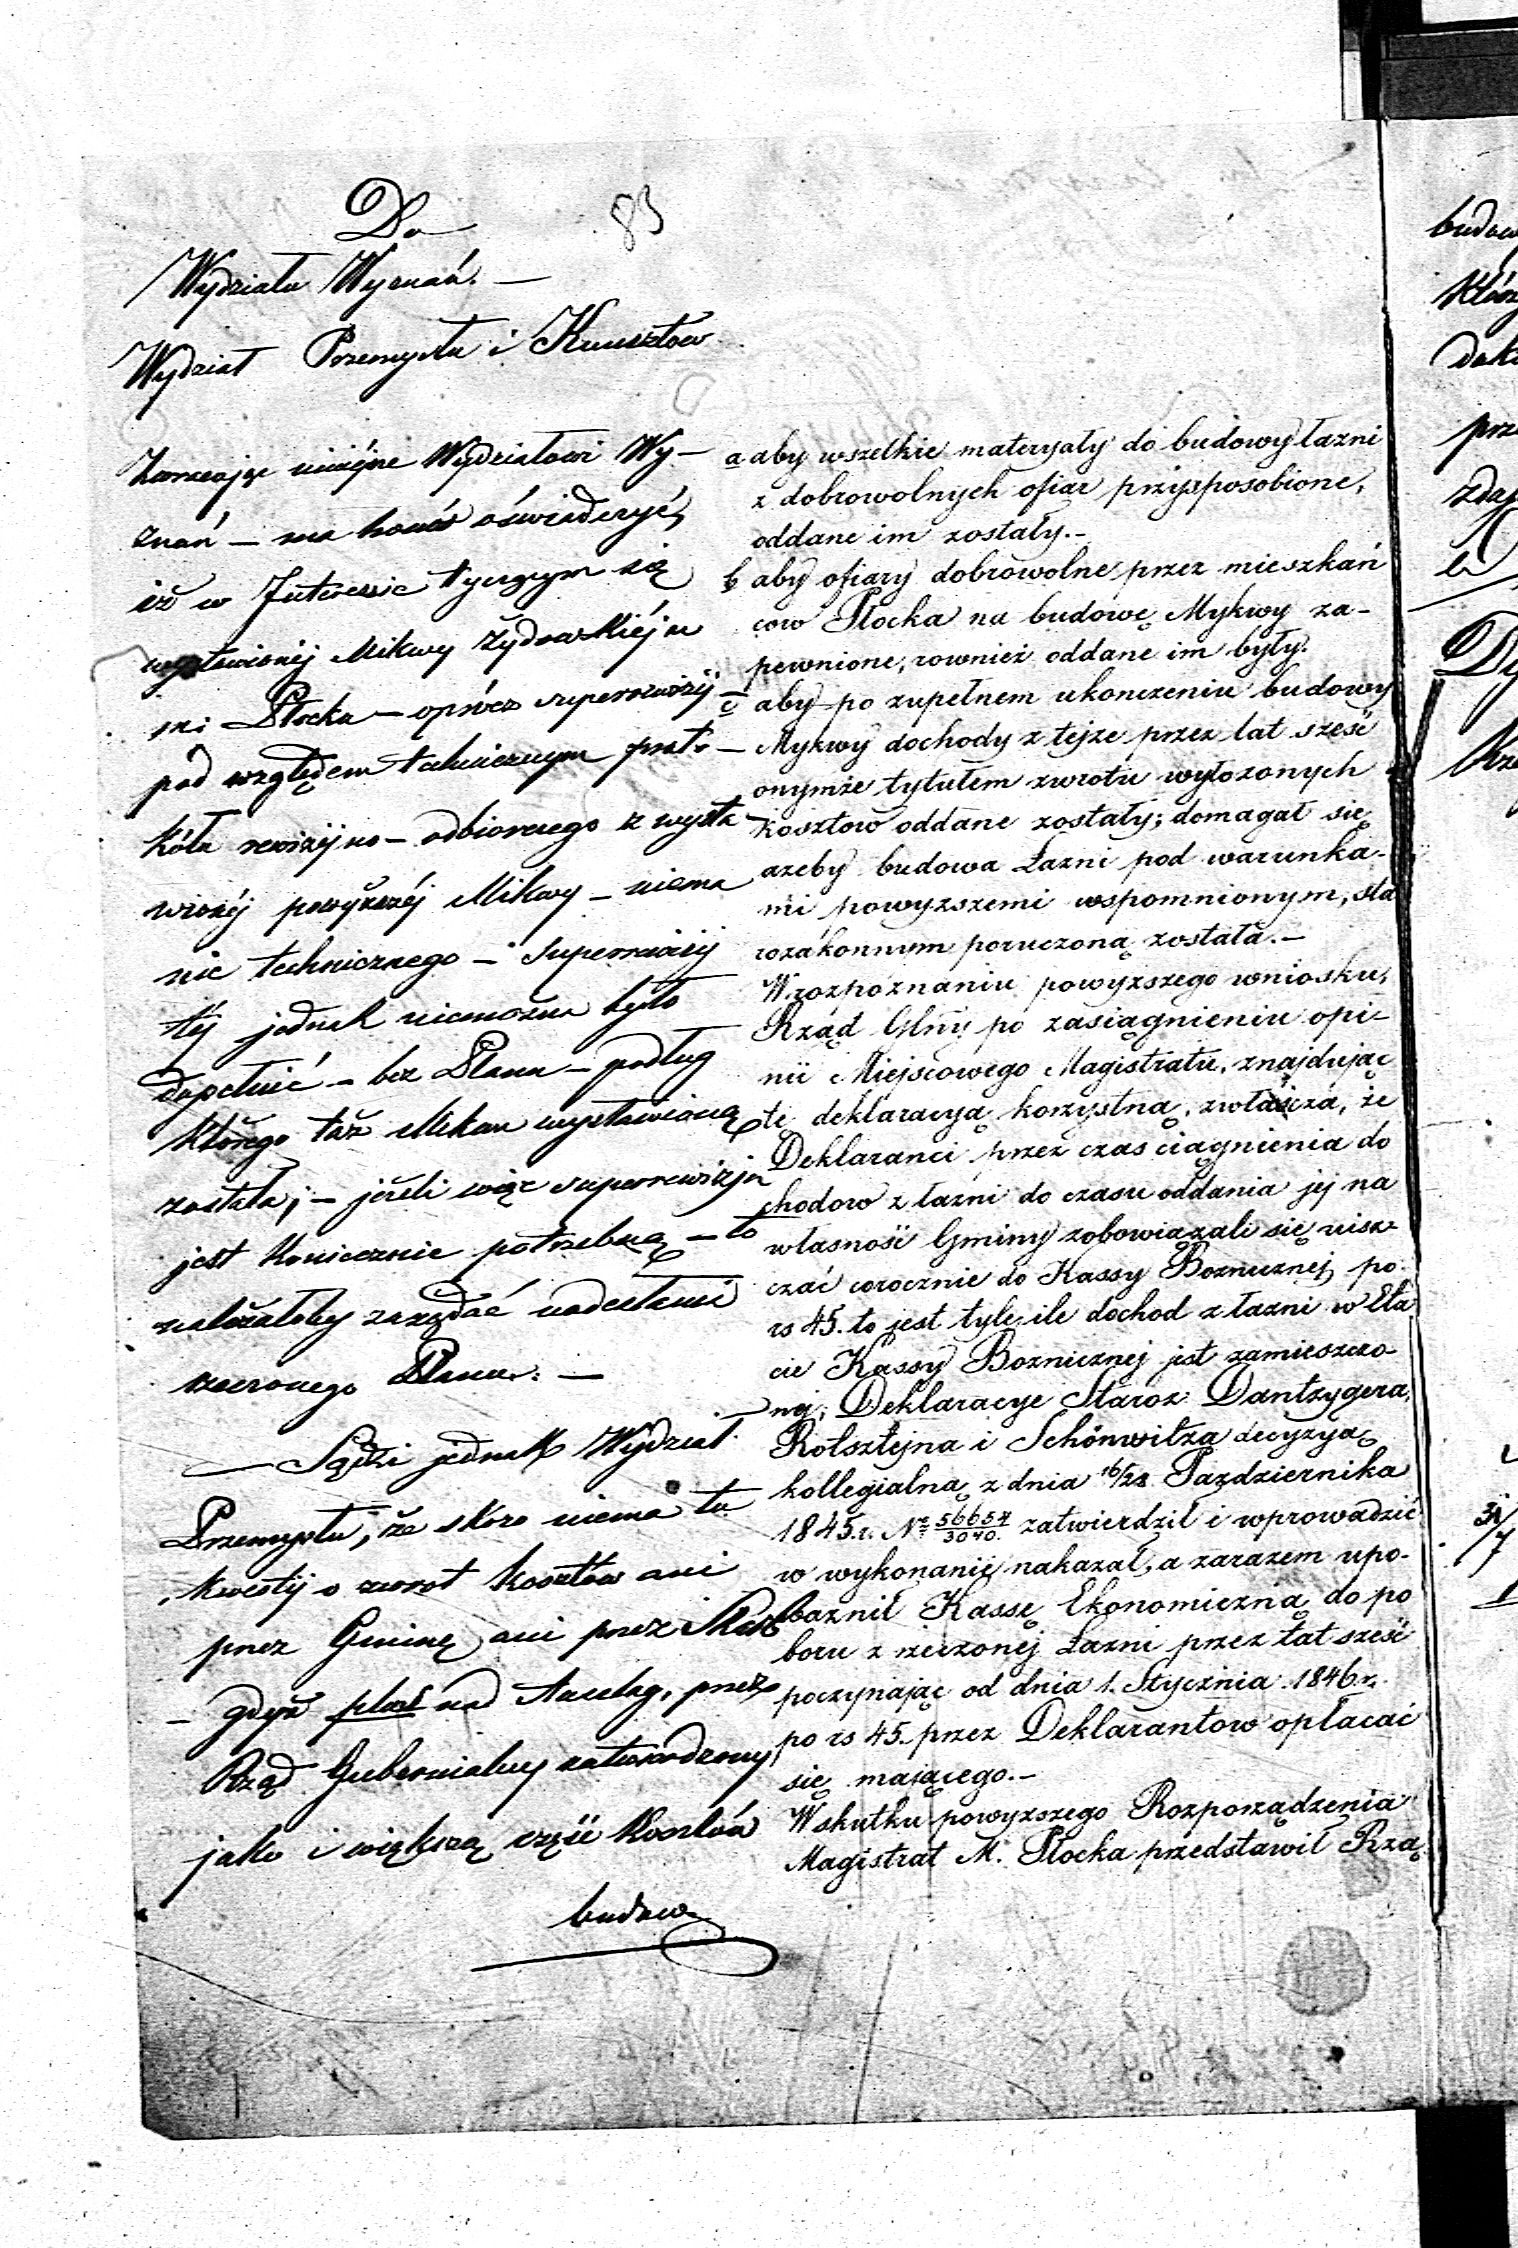 83
Do
Wydziału Wyznań. —
Wydział Przemysłu i Kunsztów
Zwracając niniéjsze Wydziałowi Wy-
znań — ma honor oświadczyć,
iż w Interessie tyczącym się
wystawionéj Mikwy Żydowskiéj w
m: Płocku — oprócz superrewizij
pod względem technicznym proto-
kóła rewizijno-odbiorczego z wysta
wionéj powyższéj Mikwy — niema
nic technicznego — Superrewizij
téj jednak niemożna było
dopełnić — bez Planu — podług
którego taż Mikwa wystawioną
została; — jeżeli więc superrewizija
jest koniecznie potrzebną — to
należałoby zażądać nadesłani
rzeczonego Planu. —
— Sądzi jednak Wydział
Przemysłu, że skoro niema tu
kwestij o zwrot kosztów ani
przez Gminę ani przez Skarb
— gdyż plan na Anszlag, przez
Rząd Gubernialny zatwierdzony,
jako i większą część kosztów
budowy
a aby wszelkie materyały do budowy łazni
z dobrowolnych ofiar przysposobione,
oddane im zostały.-
b aby ofiary dobrowolne przez mieszkań
cow Płocka na budowę Mykwy za-
pewnione, rownież oddane im były.
c aby po zupełnem ukonczeniu budowy
Mykwy dochody z tejze przez lat sześć
onymże tytułem zwrotu wyłozonych
kosztow oddane zostały; domagał się
azeby budowa Łazni pod warunka-
mi powyzszemi wspomnionym, sta
rozakonnym poruczoną została.-
W rozpoznaniu powyzszego wniosku,
Rząd Glny po zasiągnieniu opi-
nii Miejscowego Magistratu, znajdując
tę deklaracyą korzystną, zwłaścza, że
Deklaranci przez czas ciągnienia do
chodow z łazni do czasu oddania jej na
własność Gminy zobowiązali się uisz-
czać corocznie do Kassy Boznicznej po
rs 45. to jest tyle ile dochod z łazni w Eta
cie Kassy Boznicznej jest zamieszczo-
nej; Deklaracye Staroz. Dantzygera,
Rotsztejna i Schönwitza decyzyą
kollegialną z dnia 16/28 Pazdziernika
1845.r. Nr 56654/3040. zatwierdził i wprowadzić
w wykonanie nakazał, a zarazem upo-
ważnił Kassę Ekonomiczną do po
boru z rzeczonej Łazni przez lat sześć
poczynając od dnia 1. Stycznia 1846 r.
po rs 45. przez Deklarantow opłacać
się mającego.-
W skutku powyzszego Rozporządzenia
Magistrat M. Płocka przedstawił Rzą